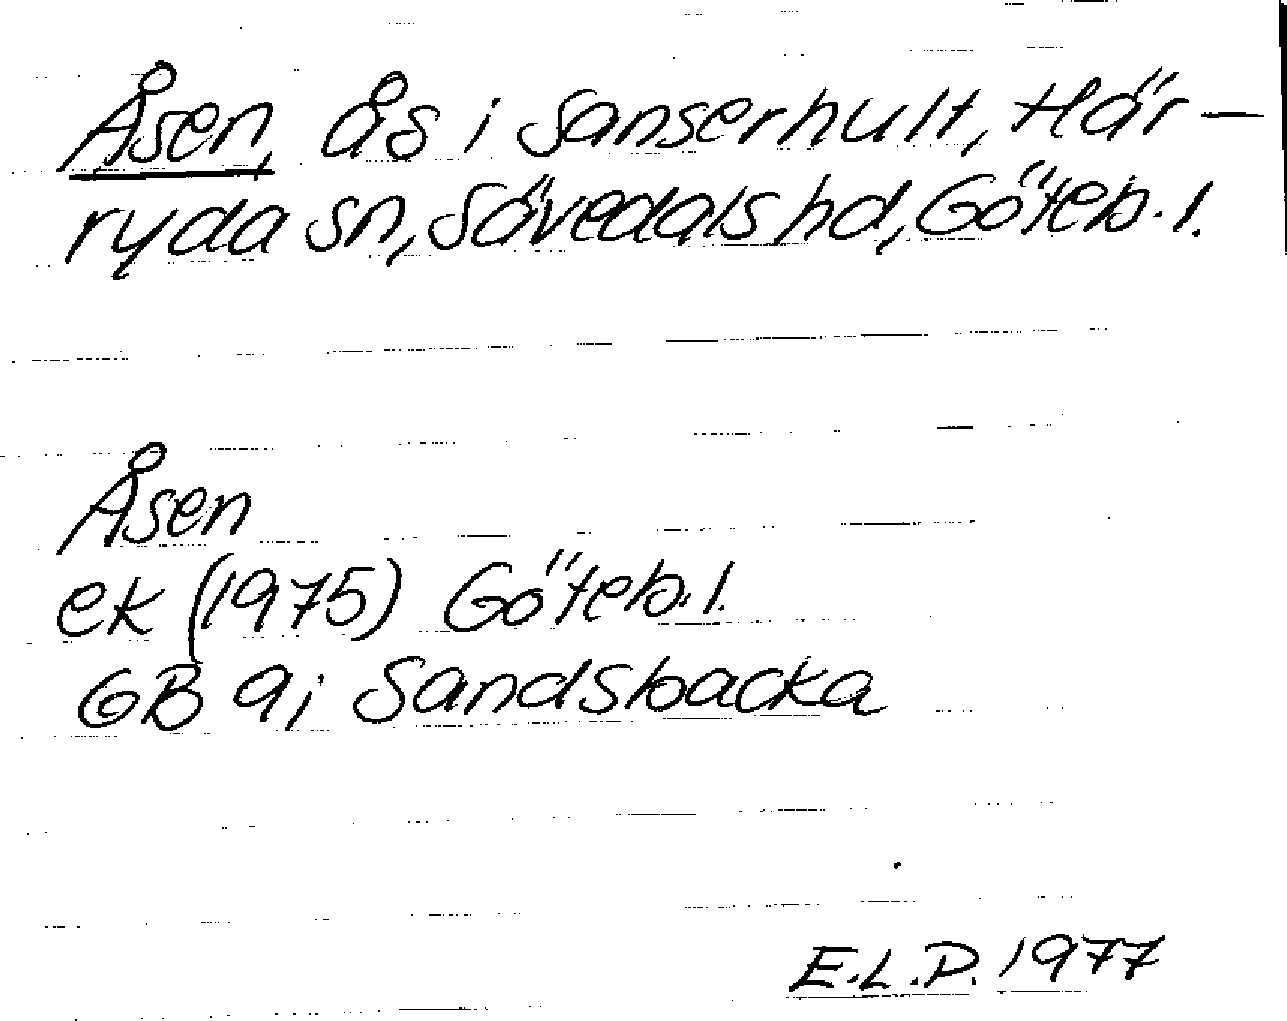 Åsen, ås i Sanserhult, Här-
ryda sn, Sävedals hd, Göteb. l.
Åsen
ek (1975) Göteb. l.
GB 9; Sandsbacka
E.L.P. 1977